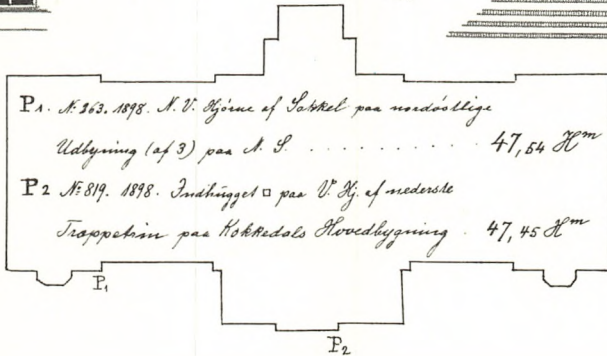 P1. № 263. 1898. N. V. Hjörne af Sokkel paa nordöstlige
Udbyning (af 3) paa N. S. . . . . . . . . . . . 47,54 Hm
P2 № 819. 1898. Indhugget □ paa V. Hj. af nederste
Trappetrin paa Kokkedals Hovedbygning . 47,45 Hm
P1
P2